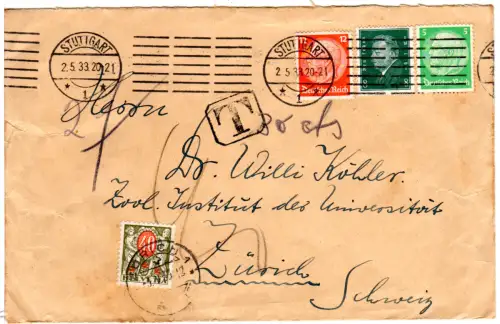 STUTTGART
2.5.33.20-21
* 1 *
STUTTGART
2.5.33.20-21
* 1 *
12
Deutsches Reich
8
5
Deutsches Reich
Herrn
T
80 cts
Dr. Willi Köhler.
Zool. Institut des Universität
Zürich
Schweiz
40